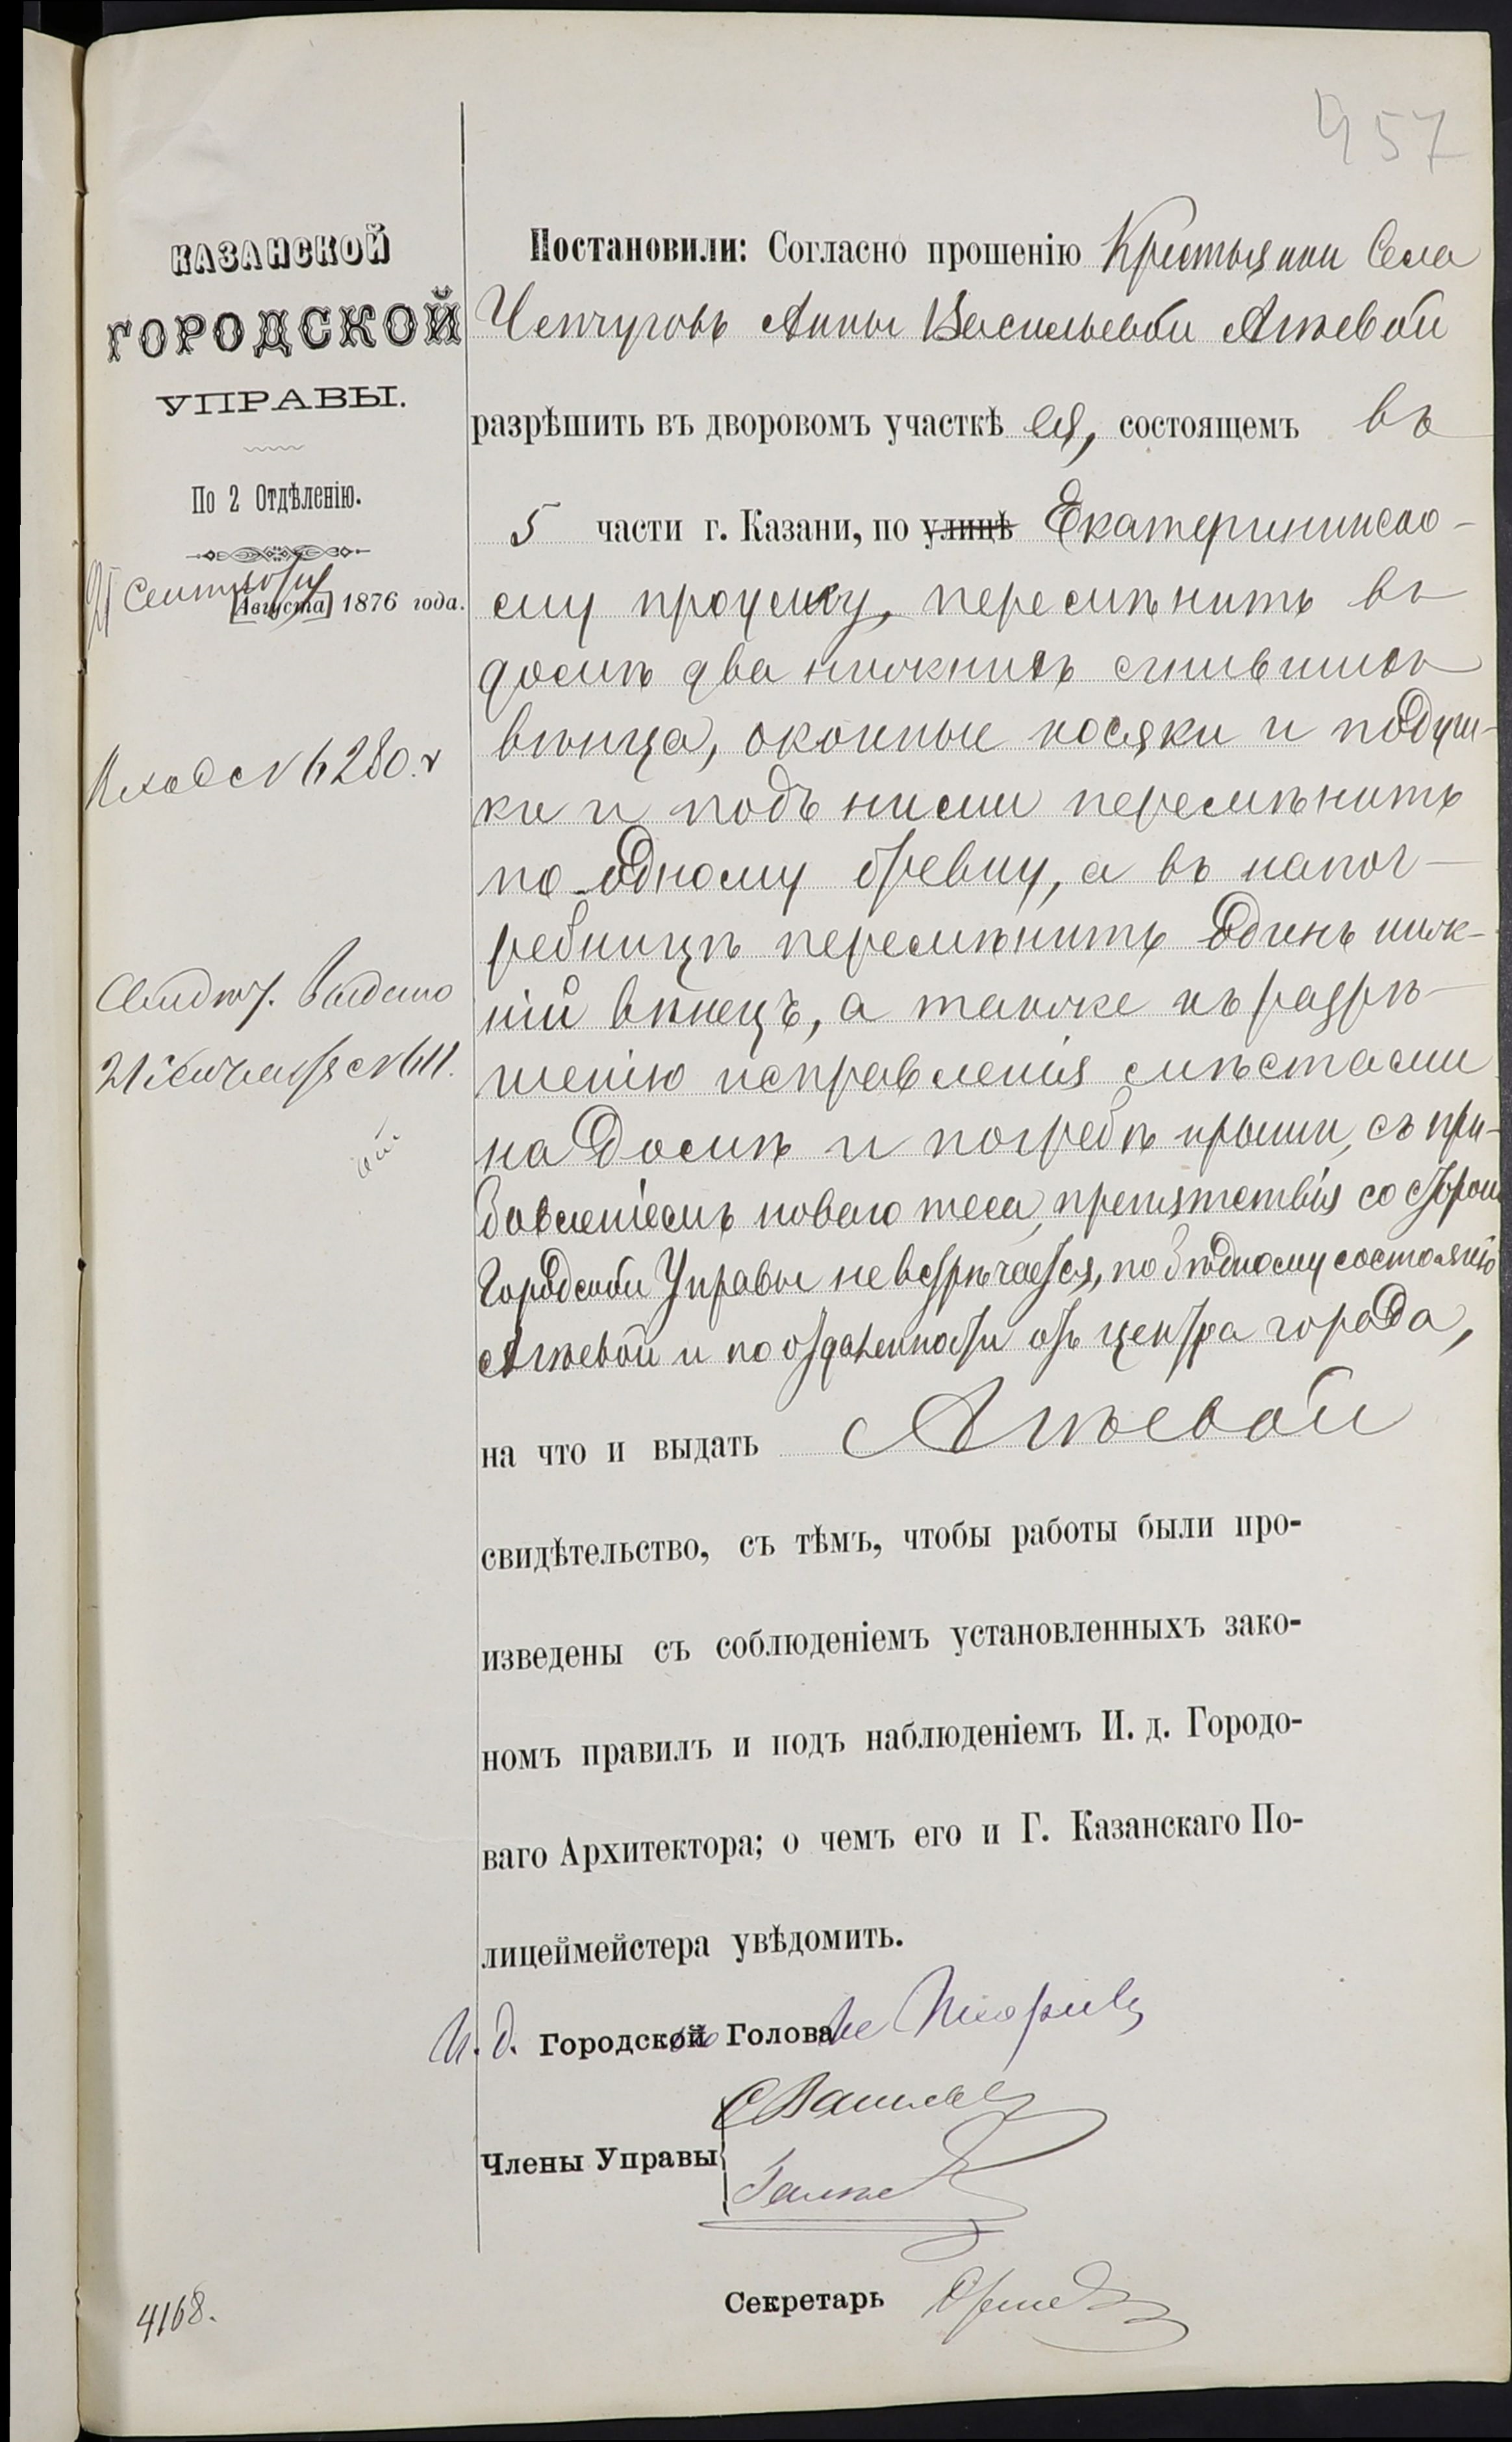 957
КАЗАНСКОЙ
ГОРОДСКОЙ
УПРАВЫ.
По 2 Отдѣленію.
21 Сентября
Августа 1876 года.
Исход № 6280.
Свидѣт. выдано
21 Сентября № 611.
4168.
Постановили: Согласно прошенію Крестьянки Села
Чепчуговъ Анны Васильевой Агѣевой
разрѣшить въ дворовомъ участкѣ ея, состоящемъ въ
5 части г. Казани, по улицѣ Екатерининско-
му проулку, перемѣнить въ
домѣ два нижнихъ сгнившихъ
вѣнца, оконные косяки и подуш-
ки и подъ ними перемѣнить
по одному бревну, а въ напог-
ребницѣ перемѣнить одинъ ниж-
ній вѣнецъ, а также къ разрѣ-
шенію исправленія мѣстами
на домѣ и погребѣ крыши, съ при-
бавленіемъ новаго теса, препятствія со сторон
Городской Управы не встрѣчается, по бѣдному состоянію
Агѣевой и по отдаленности отъ центра города,
на что и выдать Агѣевой
свидѣтельство, съ тѣмъ, чтобы работы были про-
изведены съ соблюденіемъ установленныхъ зако-
номъ правилъ и подъ наблюденіемъ И. д. Городо-
ваго Архитектора; о чемъ его и Г. Казанскаго По-
лицеймейстера увѣдомить.
И. д. Городской Голова
Члены Управы
Секретарь